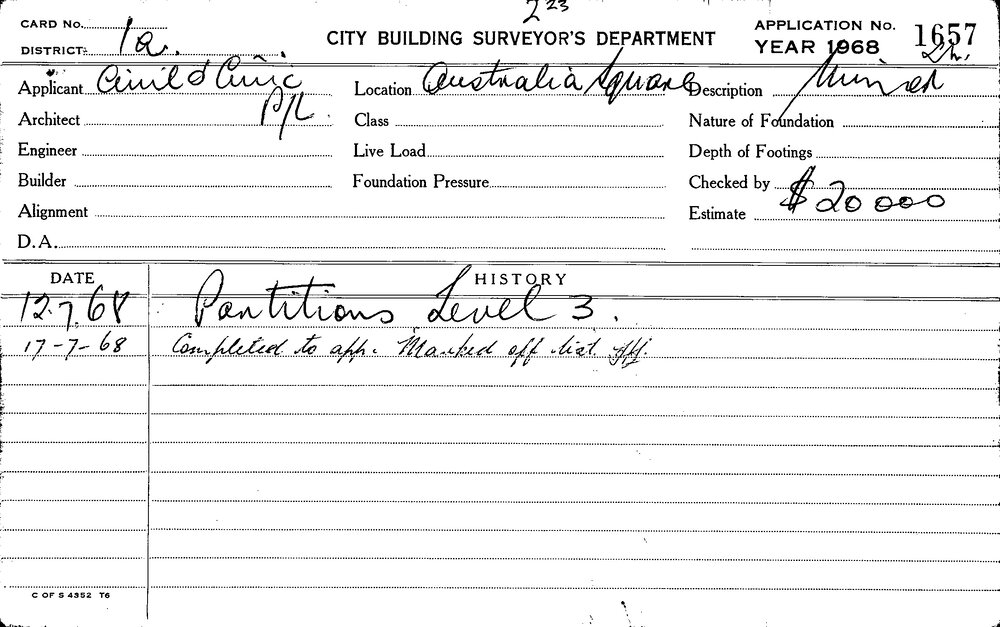 2 23
CARD No.
DISTRICT: 1a.
CITY BUILDING SURVEYOR'S DEPARTMENT
APPLICATION No. 1657
YEAR 1968
Applicant Civil & Civic P/L.
Location Australia Square
Description
Architect
Class
Nature of Foundation
Engineer
Live Load
Depth of Footings
Builder
Foundation Pressure
Checked by
Alignment
Estimate $20000
D.A.
DATE
HISTORY
12.7.68 Partitions Level 3.
17-7-68 Completed to app. Marked off list
C OF S 4352 T6